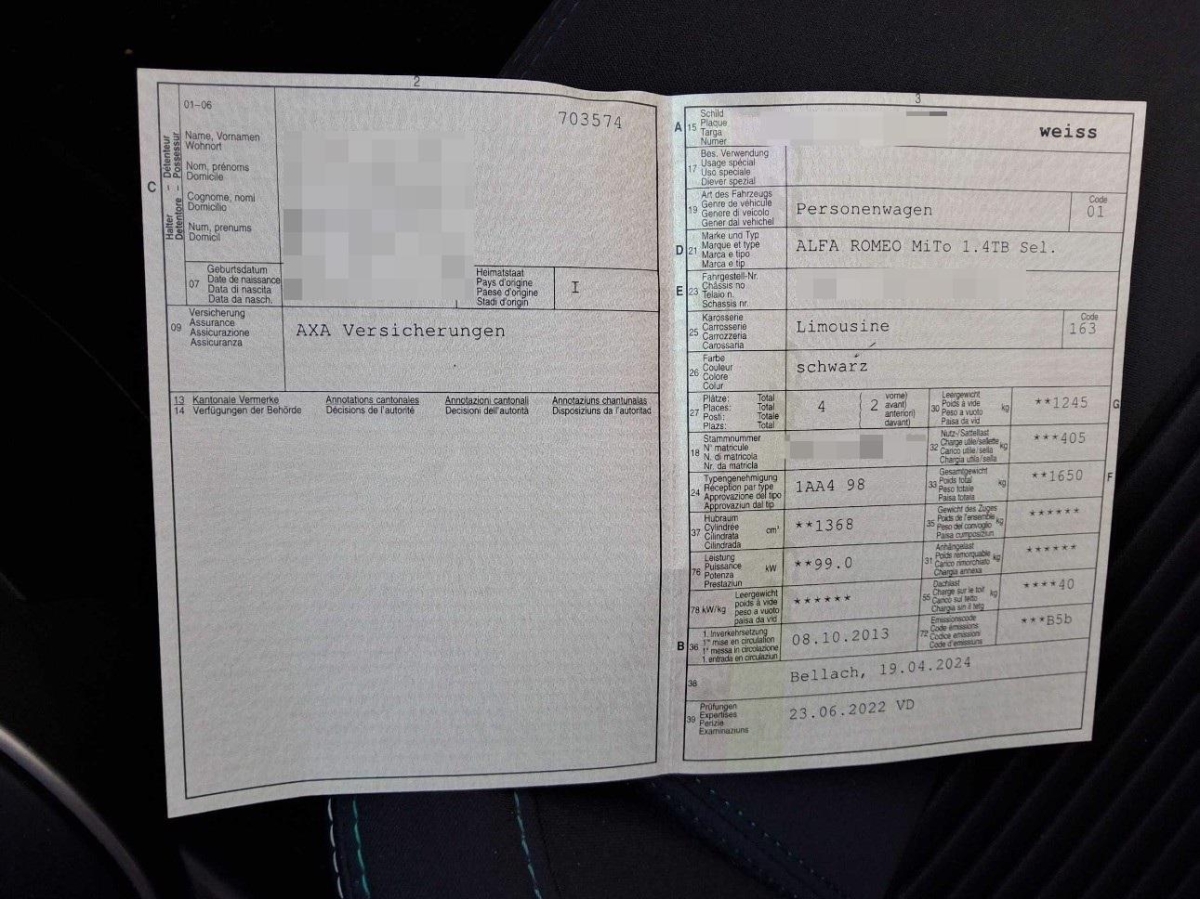 2
01–06
703574
C
Halter – Détenteur
Detentore – Possessur
Name, Vornamen
Wohnort
Nom, prénoms
Domicile
Cognome, nomi
Domicilio
Num, prenums
Domicil
07
Geburtsdatum
Date de naissance
Data di nascita
Data da nasch.
Heimatstaat
Pays d'origine
Paese d'origine
Stadi d'origin
I
09
Versicherung
Assurance
Assicurazione
Assicuranza
AXA Versicherungen
13 Kantonale Vermerke Annotations cantonales Annotazioni cantonali Annotaziuns chantunalas
14 Verfügungen der Behörde Décisions de l'autorité Decisioni dell'autorità Disposiziuns da l'autoritad
3
A 15
Schild
Plaque
Targa
Numer
weiss
17
Bes. Verwendung
Usage spécial
Uso speciale
Diever spezial
19
Art des Fahrzeugs
Genre de véhicule
Genere di veicolo
Gener dal vehichel
Personenwagen
Code
01
D 21
Marke und Typ
Marque et type
Marca e tipo
Marca e tip
ALFA ROMEO MiTo 1.4TB Sel.
E 23
Fahrgestell-Nr.
Châssis no
Telaio n.
Schassis nr.
25
Karosserie
Carrosserie
Carrozzeria
Carossaria
Limousine
Code
163
26
Farbe
Couleur
Colore
Colur
schwarz
27
Plätze: Total
Places: Total
Posti: Totale
Plazs: Total
4
( 2
vorne)
avant)
anteriori)
davant)
30
Leergewicht
Poids à vide
Peso a vuoto
Paisa da vid
kg
**1245
G
18
Stammnummer
N° matricule
N. di matricola
Nr. da matricla
32
Nutz-/Sattellast
Charge utile/sellette
Carico utile/sella
Chargia utila/sella
kg
***405
24
Typengenehmigung
Réception par type
Approvazione del tipo
Approvaziun dal tip
1AA4 98
33
Gesamtgewicht
Poids total
Peso totale
Paisa totala
kg
**1650
F
37
Hubraum
Cylindrée
Cilindrata
Cilindrada
cm³
**1368
35
Gewicht des Zuges
Poids de l'ensemble
Peso del convoglio
Paisa cumposiziun
kg
******
76
Leistung
Puissance
Potenza
Prestaziun
kW
**99.0
31
Anhängelast
Poids remorquable
Carico rimorchiato
Chargia annexa
kg
******
78 kW/kg
Leergewicht
poids à vide
peso a vuoto
paisa da vid
******
55
Dachlast
Charge sur le toit
Carico sul tetto
Chargia sin il tetg
kg
****40
B 36
1. Inverkehrsetzung
1re mise en circulation
1a messa in circolazione
1. entrada en circulaziun
08.10.2013
72
Emissionscode
Code émissions
Codice emissioni
Code d'emissiuns
***B5b
38
Bellach, 19.04.2024
39
Prüfungen
Expertises
Perizie
Examinaziuns
23.06.2022 VD